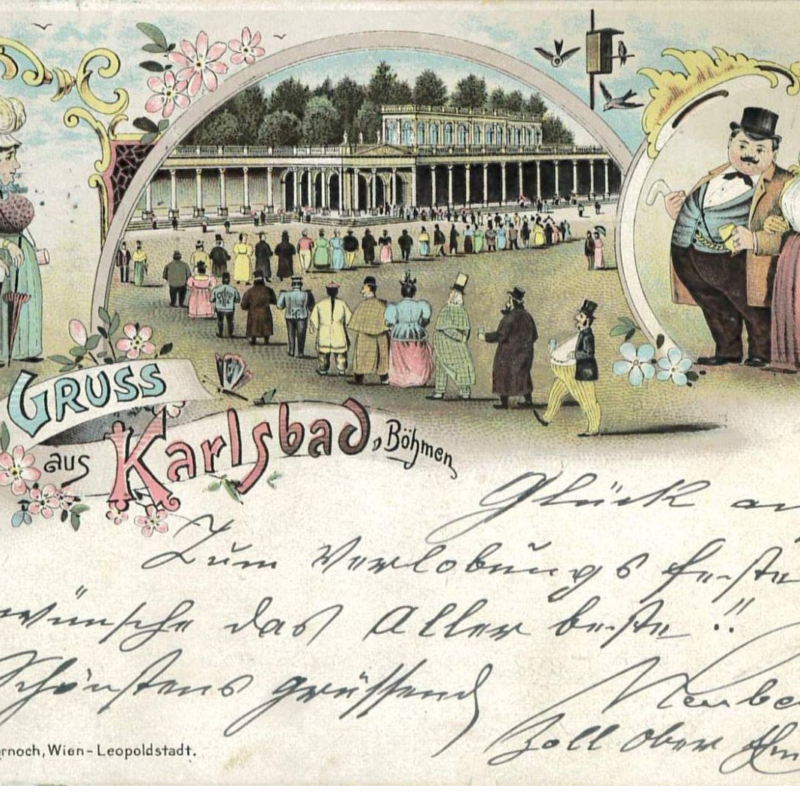 GRUSS
aus Karlsbad, Böhmen,
Glück
Zum Verlobungs feste
wünsche das Aller beste!!
Schönstens grüssend
Zoll Ober
rnoch, Wien-Leopoldstadt.